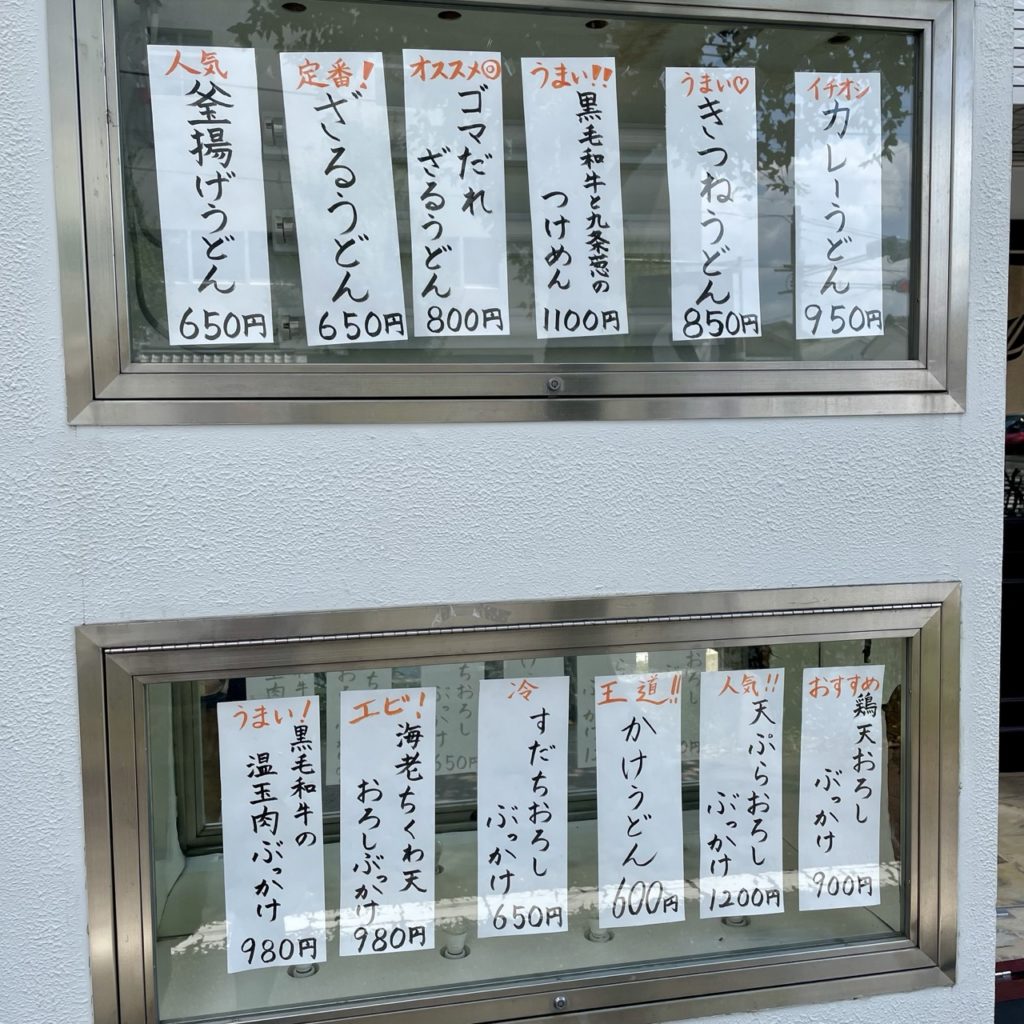 人気
釜揚げうどん
650円
定番!
ざるうどん
650円
オススメ◎
ゴマだれ
ざるうどん
800円
うまい!!
黒毛和牛と九条葱の
つけめん
1100円
うまい♡
きつねうどん
850円
イチオシ
カレーうどん
950円
うまい!
黒毛和牛の
温玉肉ぶっかけ
980円
エビ!
海老ちくわ天
おろしぶっかけ
980円
冷
すだちおろし
ぶっかけ
650円
王道!!
かけうどん
600円
人気!!
天ぷらおろし
ぶっかけ
1200円
おすすめ
鶏天おろし
ぶっかけ
900円